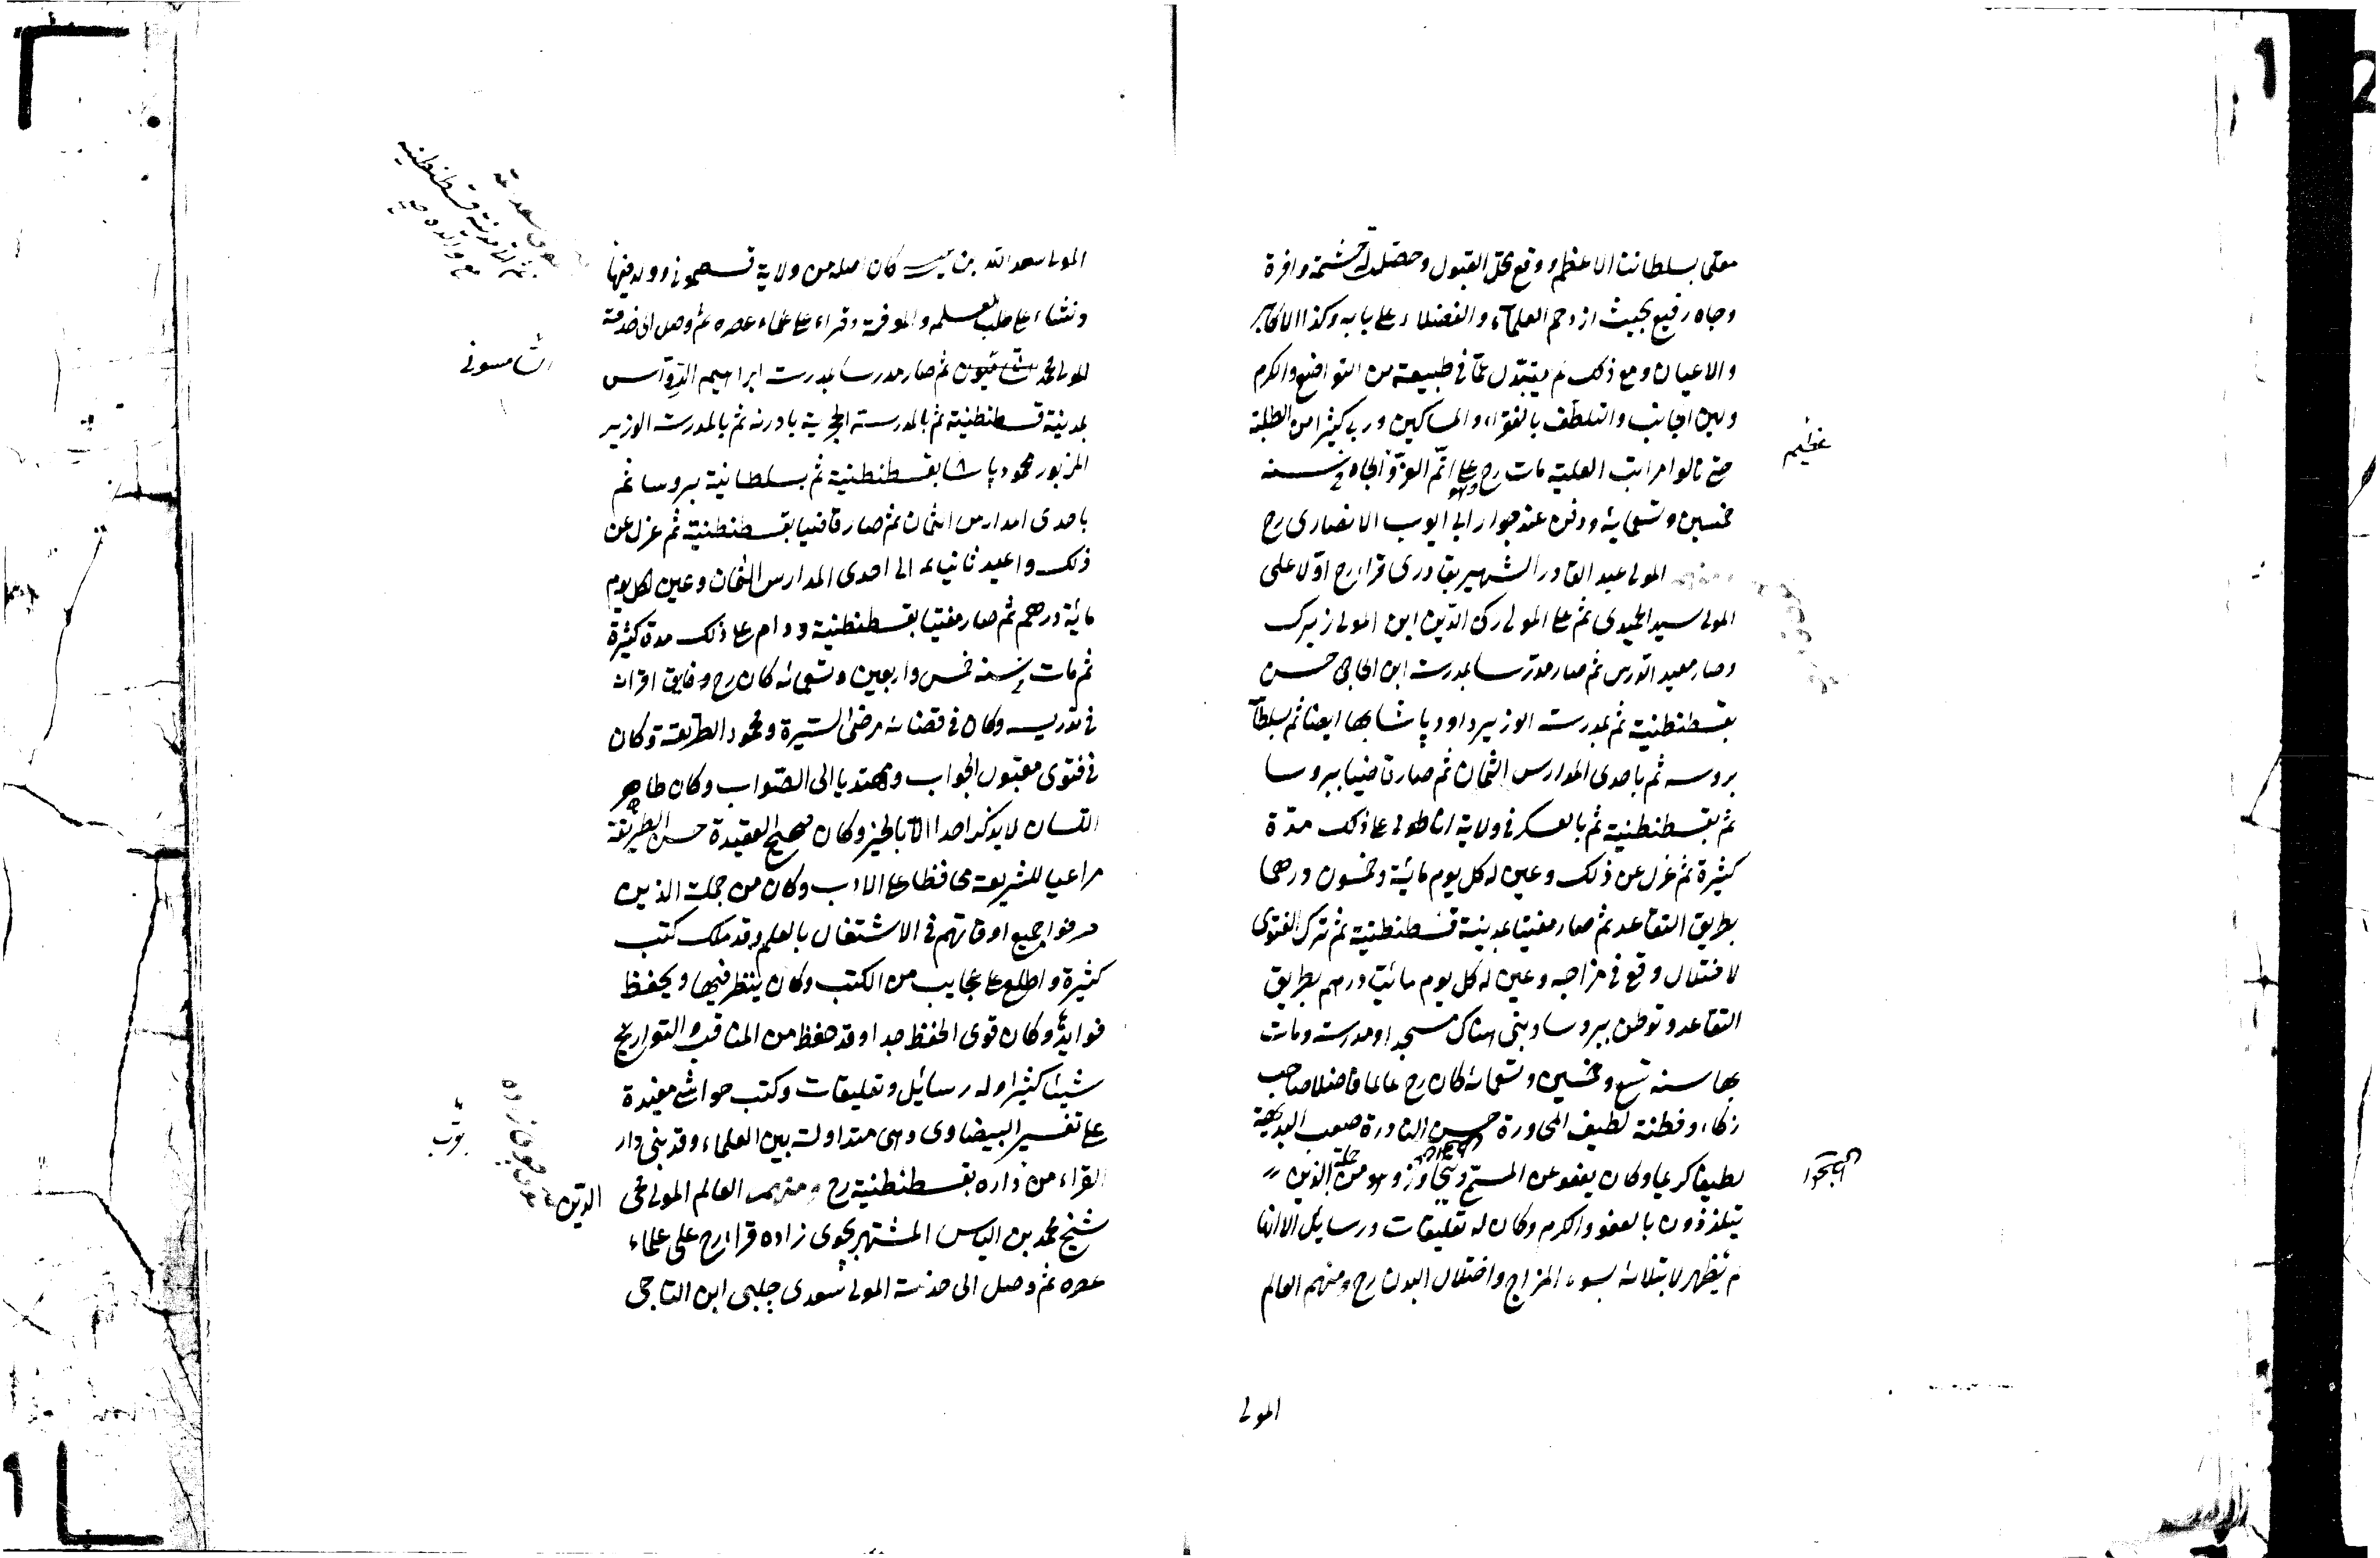 معلما لسلطاننا الاعظم ووقع محل القبول وحصلت له حشمة وافرة
وجاه رفيع بحيث ازدحم العلماء والفضلاء على بابه وكذا الاكابر
والاعيان ومع ذلك لم يتبدل عما في طبيعته من التواضع والكرم
ولين الجانب والتلطف بالفقراء والمساكين وربى كثيرا من الطلبة
عظيم
حتى نالوا مراتب العلية مات رح وهو على اتم العز والجاه في سنة
خمسين وتسعمائة ودفن عند جوار ابي ايوب الانصاري رح
المولى عبد القادر الشهير بقادري قرا رح اولا على
المولى سيد الحميدي ثم على المولى ركن الدين ابن المولى زيرك
وصار معيد الدرس ثم صار مدرسا بمدرسة ابن الحاجي حسن
بقسطنطنية ثم بمدرسة الوزير داود پاشا بها ايضا ثم بسلطا
بروسه ثم باحدى المدارس الثمان ثم صار قاضيا ببروسا
ثم بقسطنطنية ثم بالعسكر في ولاية اناطولى على ذلك مدة
كثيرة ثم عزل عن ذلك وعين له كل يوم مائية وخمسون درهما
بطريق التقاعد ثم صار مفتيا بمدينة قسطنطنية ثم ترك الفتوى
لاختلال وقع في مزاجه وعين له كل يوم مائتا درهم بطريق
التقاعد وتوطن ببروسا وبنى هناك مسجدا ومدرسة ومات
بها سنة تسع وخمسين وتسعمائه كان رح عالما فاضلا صاحب
زكاء وفطنة لطيف المحاورة حسن النادرة صعب البديهة
لطيفا كريما وكان يعفو عن المسئ ويتجاوز وهو من جملة الذين
يتلذذون بالعفو والكرم وكان له تعليقات ورسايل الا انها
لم يظهر لابتلائه بسوء المزاج واختلال البدن رح ومنهم العالم
المولى
المولى سعد الله بن عيسى كان اصله من ولاية قسطموني وولد فيها
ونشاء على طلب العلم والمعرفة وقراء على علماء عصره ثم وصل الى خدمة
المولى محمد ثم صار مدرسا بمدرسة ابراهيم الرواس
السامسوني
بمدينة قسطنطنية ثم بالمدرسة الحجرية بادرنه ثم بالمدرسة الوزير
المزبور محمود پاشا بقسطنطنية ثم بسلطانية بروسا ثم
باحدى المدارس الثمان ثم صار قاضيا بقسطنطنية ثم عزل عن
ذلك واعيد ثانياء الى احدى المدارس الثمان وعين لكل يوم
مائية درهم ثم صار مفتيا بقسطنطنية ودام على ذلك مدة كثيرة
ثم مات في سنه خمس واربعين وتسعمائه كان رح وفايق اقرانه
في تدريسه وكان في قضائه مرضى السيرة ومحمود الطريقة وكان
في فتوى مقبول الجواب ومهتديا الى الصواب وكان طاهر
اللسان لا يذكر احدا الا بالخير وكان صحيح العقيدة حسن الطريقة
مراعيا للشريعة محافظا على الادب وكان من جملة الذين
صرفوا جميع اوقاتهم في الاشتغال بالعلم وقد ملك كتب
كثيرة واطلع على عجايب من الكتب وكان ينظر فيها ويحفظ
فوايده وكان قوى الحفظ جدا وقد حفظ من المناقب والتواريخ
شيئا كثيرا وله رسائيل وتعليقات وكتب حواشي مفيدة
على تفسير البيضاوي وهي متداولة بين العلماء وقد بنى دار
القراء من داره بقسطنطنية رح ومنهم العالم المولى محي الدين
شيخ محمد بن الياس المشتهر بجوى زاده قرا رح على علماء
عصره ثم وصل الى خدمة المولى سعدى چلبى ابن التاجى